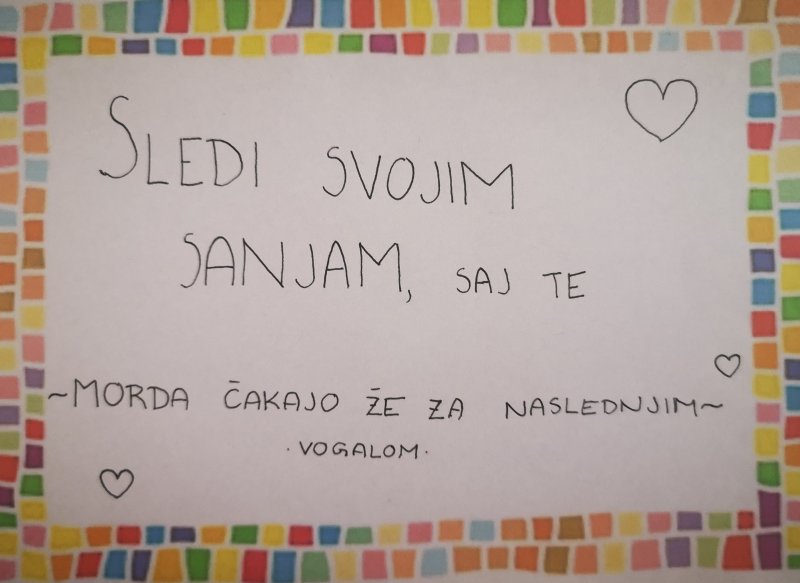 SLEDI SVOJIM
SANJAM, SAJ TE
~MORDA ČAKAJO ŽE ZA NASLEDNJIM~
·VOGALOM·